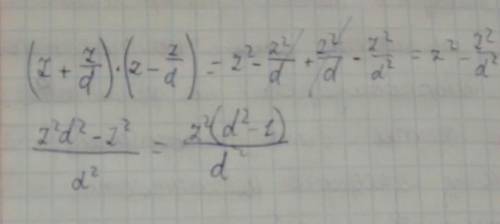 (z + z/d)·(z - z/d) = z² - z²/d + z²/d - z²/d² = z² - z²/d²
(z²d² - z²)/d² = z²(d² - 1)/d²